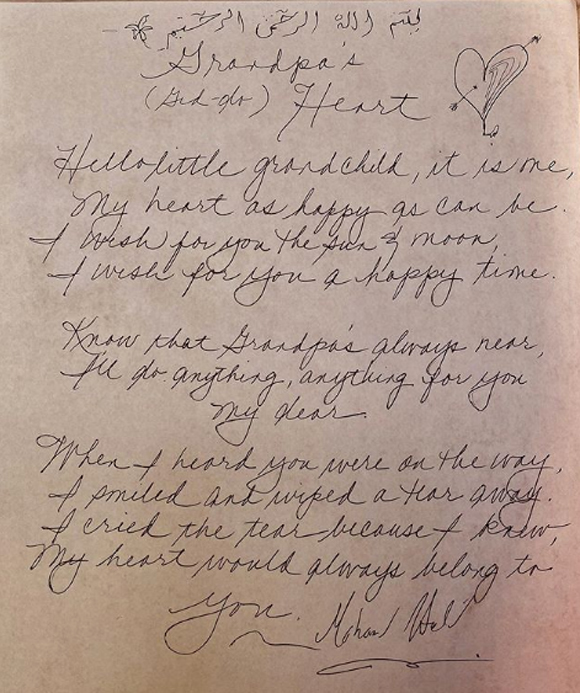 بسم الله الرحمن الرحيم
Grandpa's
(Gid-do) Heart
Hello little grandchild, it is me,
My heart as happy as can be.
I wish for you the sun & moon,
I wish for you a happy time.
Know that Grandpa's always near,
I'll do anything, anything for you
my dear.
When I heard you were on the way,
I smiled and wiped a tear away.
I cried the tear because I knew,
My heart would always belong to
you.